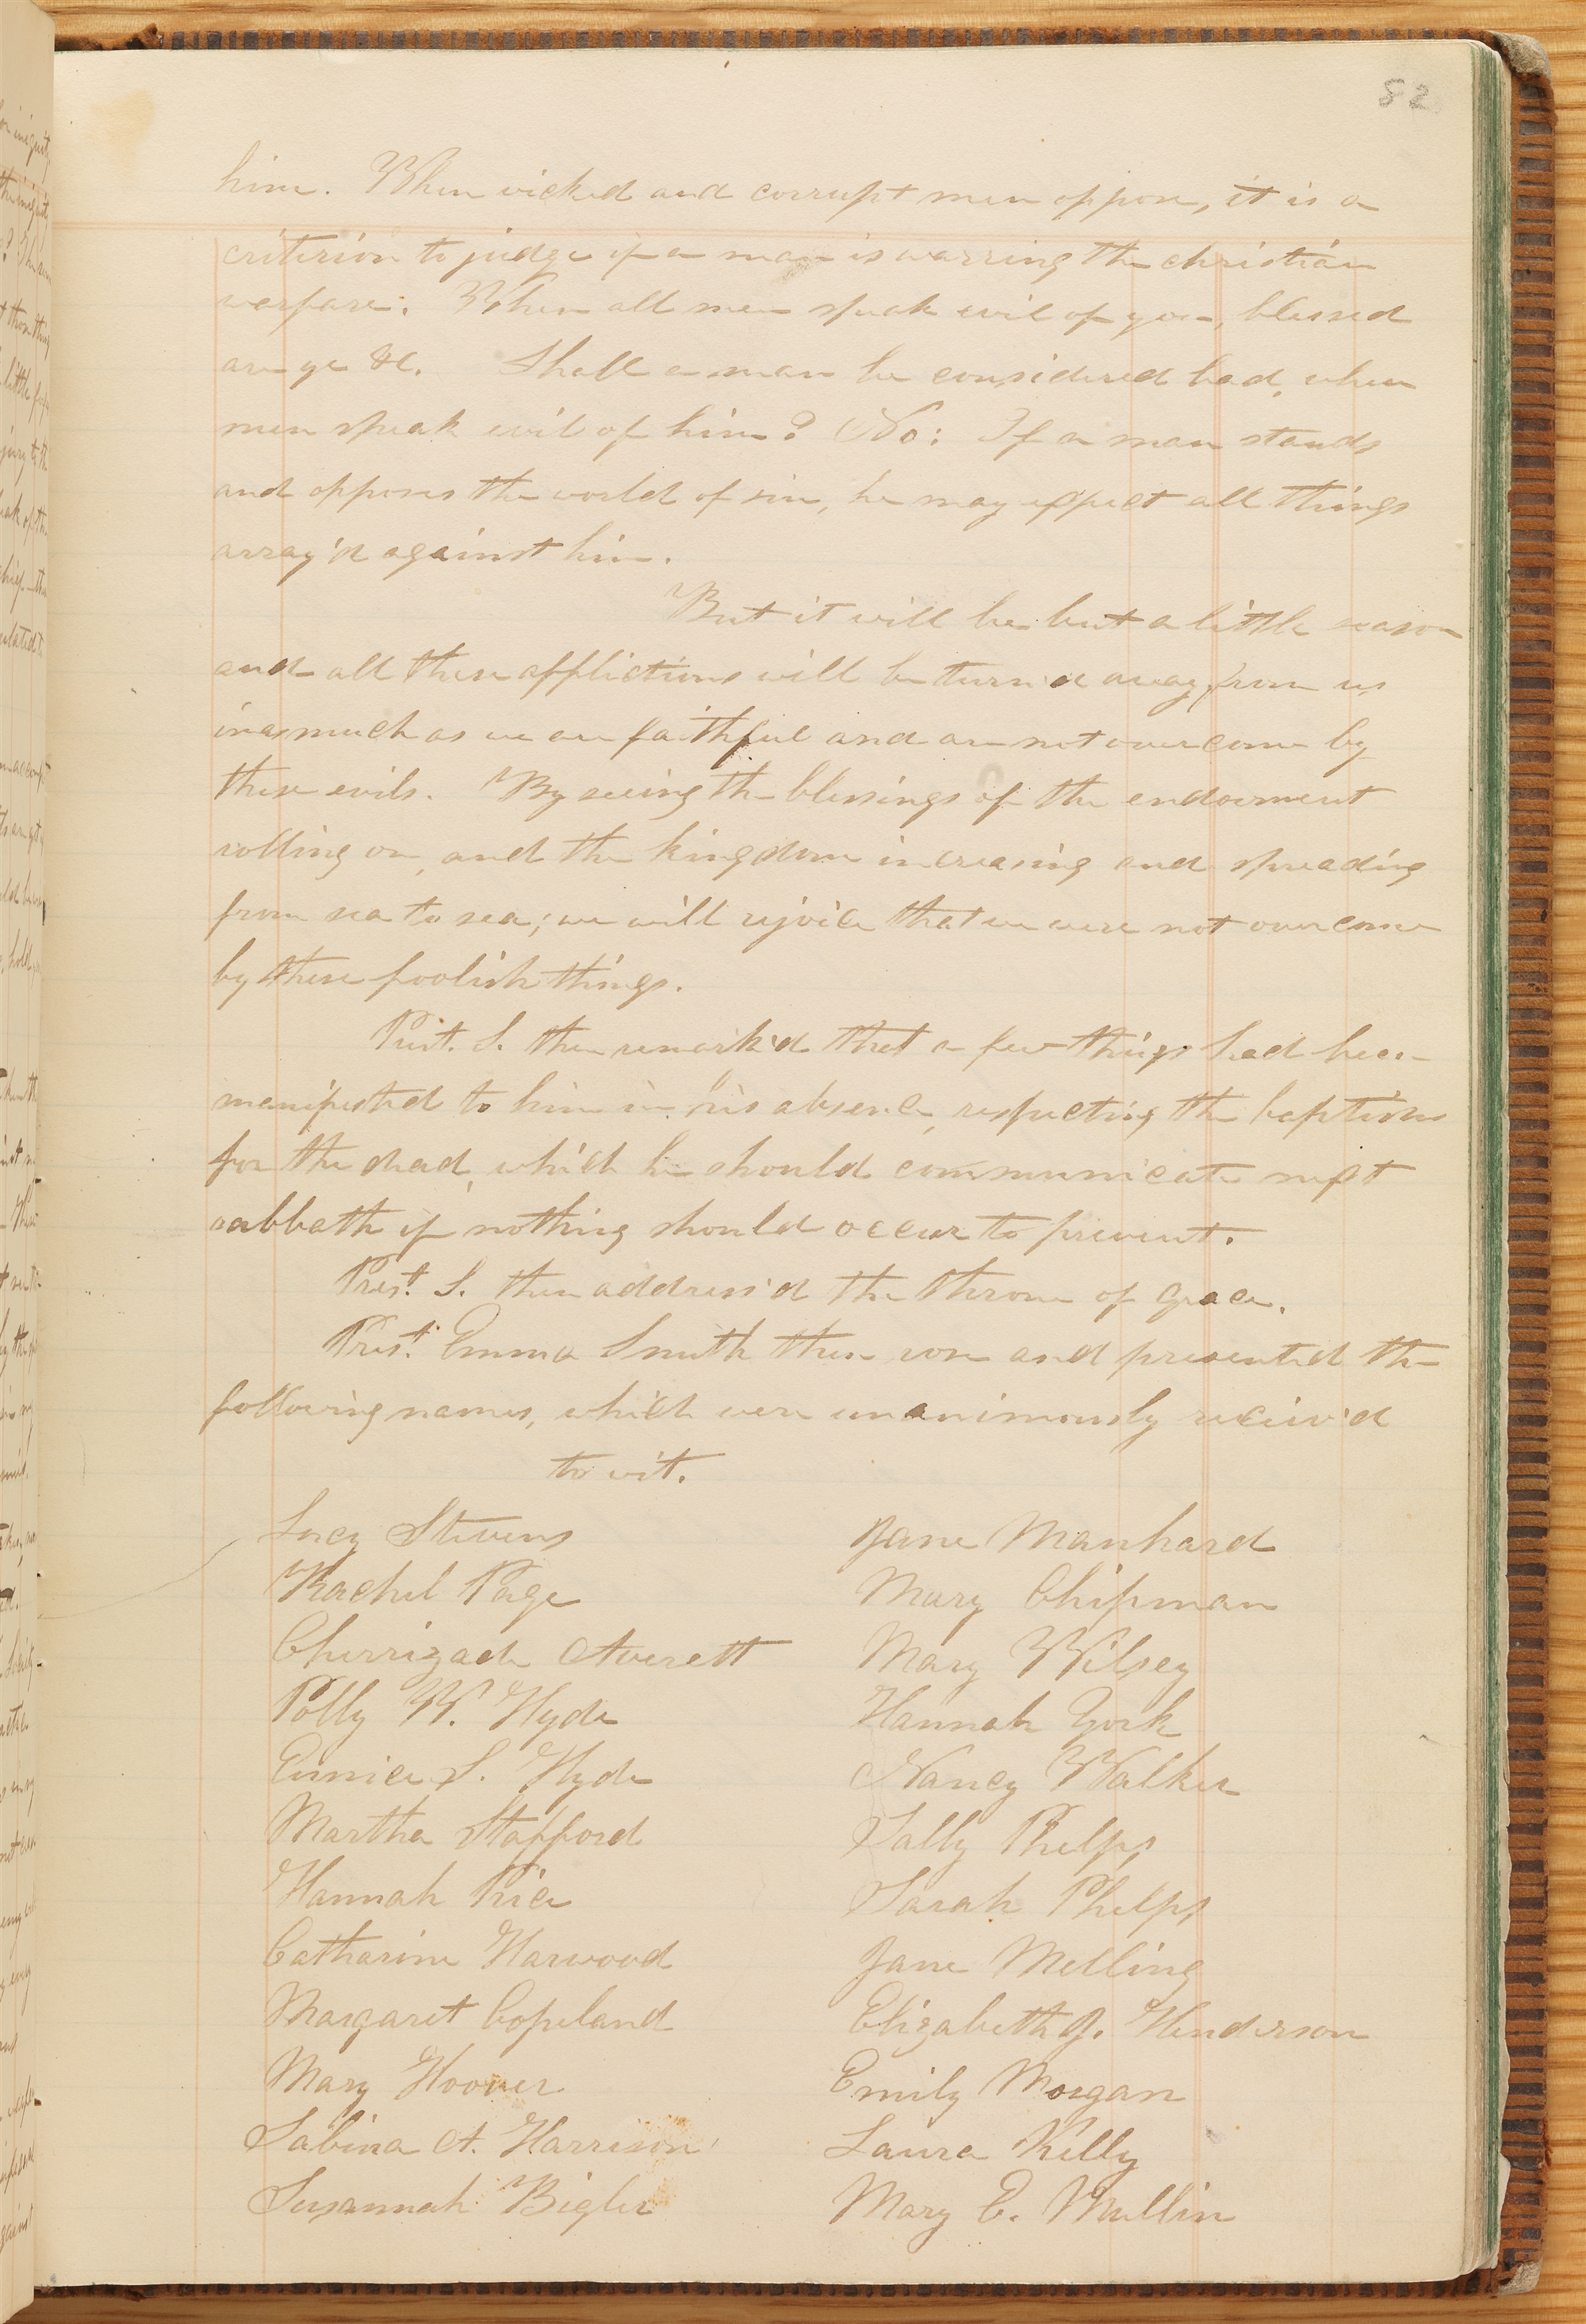 82
him. When wicked and corrupt men oppose, it is a
criterion to judge if a man is warring the christian
warfare. When all men speak evil of you, blessed
are ye &c. Shall a man be considered bad, when
men speak evil of him? No: If a man stands
and opposes the world of sin, he may expect all things
array'd against him.
But it will be but a little season
and all these afflictions will be turn'd away from us
inasmuch as we are faithful and are not overcome by
these evils. By seeing the blessings of the endowment
rolling on, and the kingdom increasing and spreading
from sea to sea; we will rejoice that we were not overcome
by these foolish things.
Prest. S. then remark'd that a few things had been
manifested to him in his absence, respecting the baptisms
for the dead, which he should communicate next
sabbath if nothing should occur to prevent.
Prest. S. then address'd the throne of Grace.
Prest. Emma Smith then rose and presented the
following names, which were unanimously receiv'd
to wit.
Lucy Stevens
Jane Manhard
Rachel Page
Mary Chipman
Cherrizade Averett
Mary Wilsey
Polly W. Hyde
Hannah York
Eunice S. Hyde
Nancy Walker
Martha Stafford
Sally Phelps
Hannah Price
Sarah Phelps
Catharine Harwood
Jane Melling
Margaret Copeland
Elizabeth J. Henderson
Mary Hoover
Emily Morgan
Sabina A. Harrison
Laura Kelly
Susannah Bigler
Mary E. Mullin